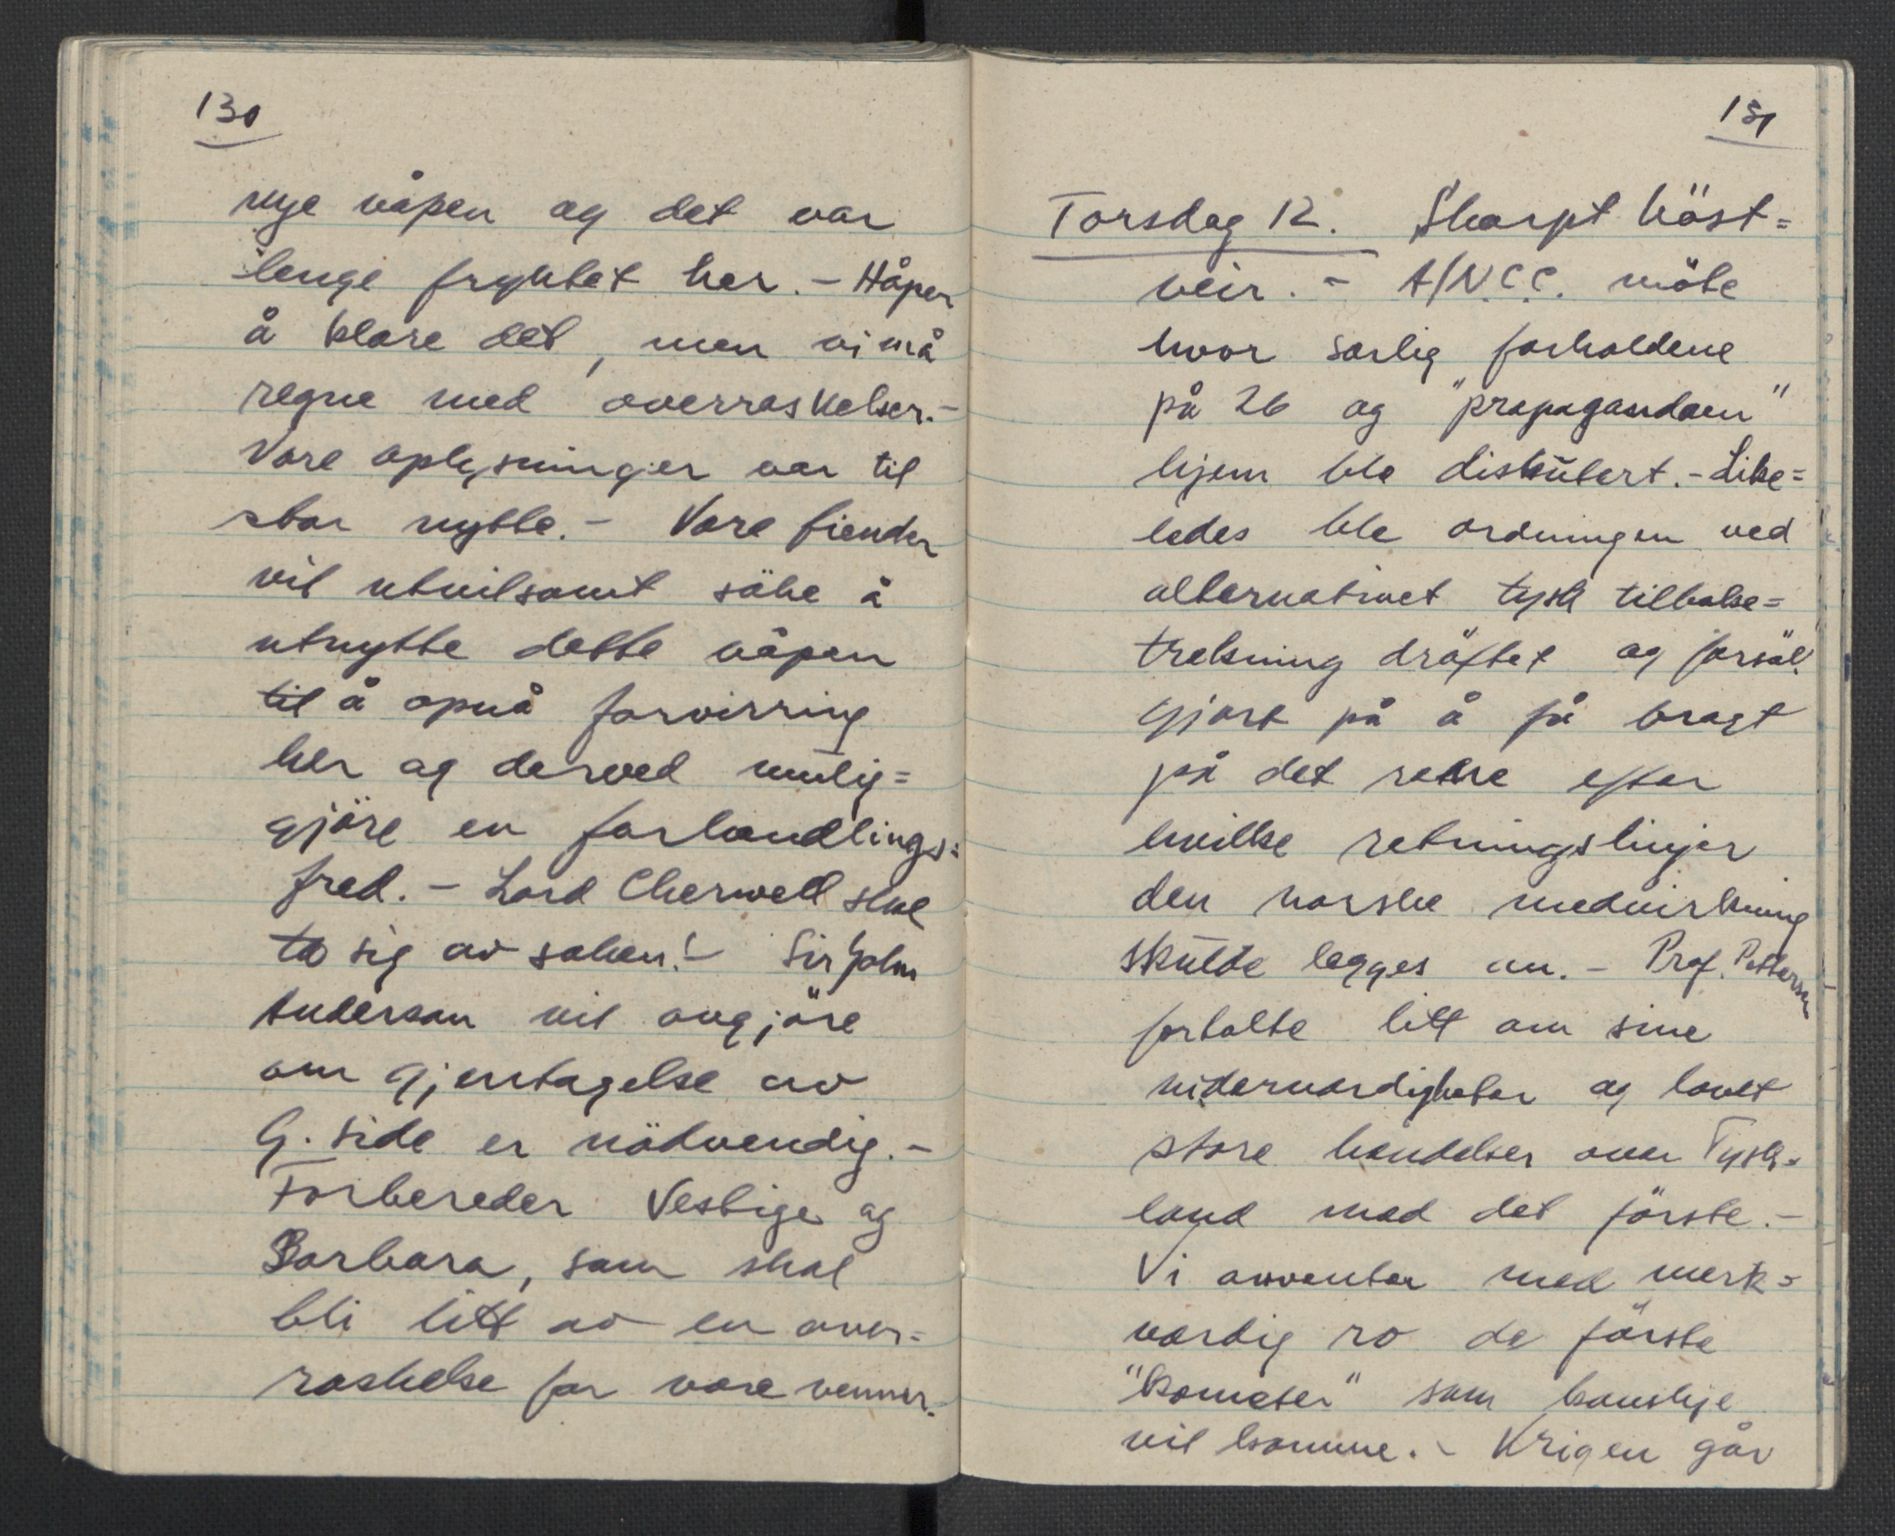 130
nye våpen og det var
lenge fryktet her. - Håper
å klare det, men vi må
regne med overraskelser. -
Vore oplysninger var til
stor nytte. - Vore fiender
vil utvilsomt söke å
utnytte dette våpen
til å opnå forvirring
her og derved mulig=
gjöre en forhandlings=
fred. - Lord Cherwell skal
ta sig av saken! - Sir John
Anderson vil avgjöre
om gjentagelse av
G. side er nödvendig. -
Forbereder Vestige og
Barbara, som skal
bli litt av en over=
raskelse for vore venner. -
131
Torsdag 12. Skarpt höst=
veir. - A/NCC. möte
hvor særlig forholdene
på 26 og "propagandaen"
hjem ble diskutert. - Like=
ledes ble ordningen ved
alternativet tysk tilbake=
trekning dröftet og forsök
gjort på å få bragt
på det rene efter
hvilke retningslinjer
den norske medvirkning
skulde legges an. - Prof. Pettersen
fortalte litt om sine
viderverdigheter og lovet
store hendelser over Tysk=
land med det förste. -
Vi avventer med merk=
verdig ro de förste
"kometer" som kanskje
vil komme. - Krigen går